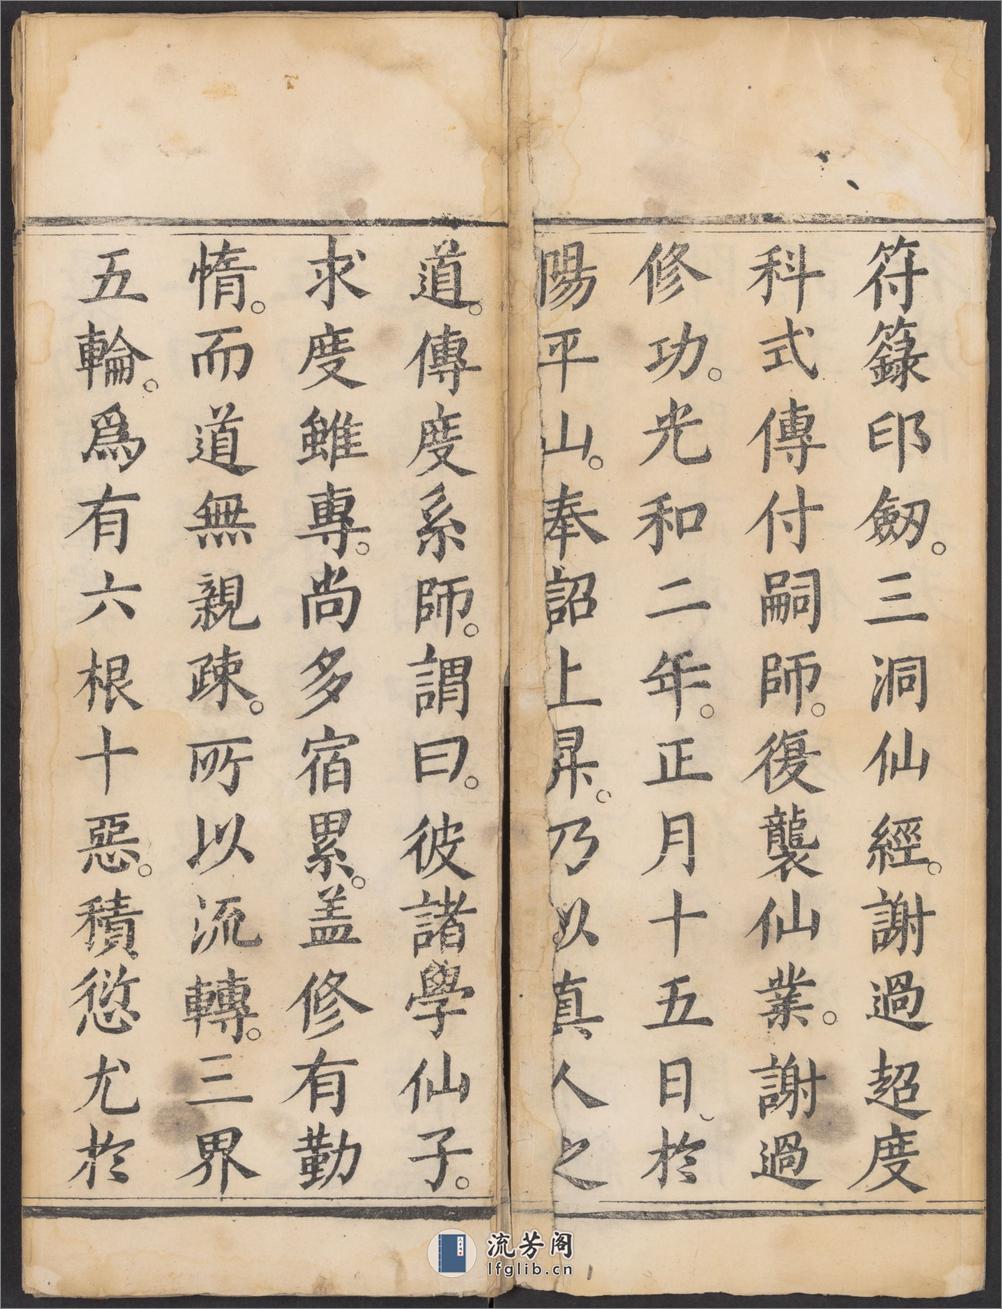 符籙印劒。三洞仙經。謝過超度
科式傳付嗣師。復襲仙業。謝過
修功。光和二年。正月十五日、於
陽平山。奉詔上昇。乃以真人之
道。傳度系師。謂曰。彼諸學仙子。
求度雖專。尚多宿累。盖修有勤
惰。而道無親疎。所以流轉。三界
五輪。爲有六根十惡。積愆尤於
流芳阁
lfglib.cn